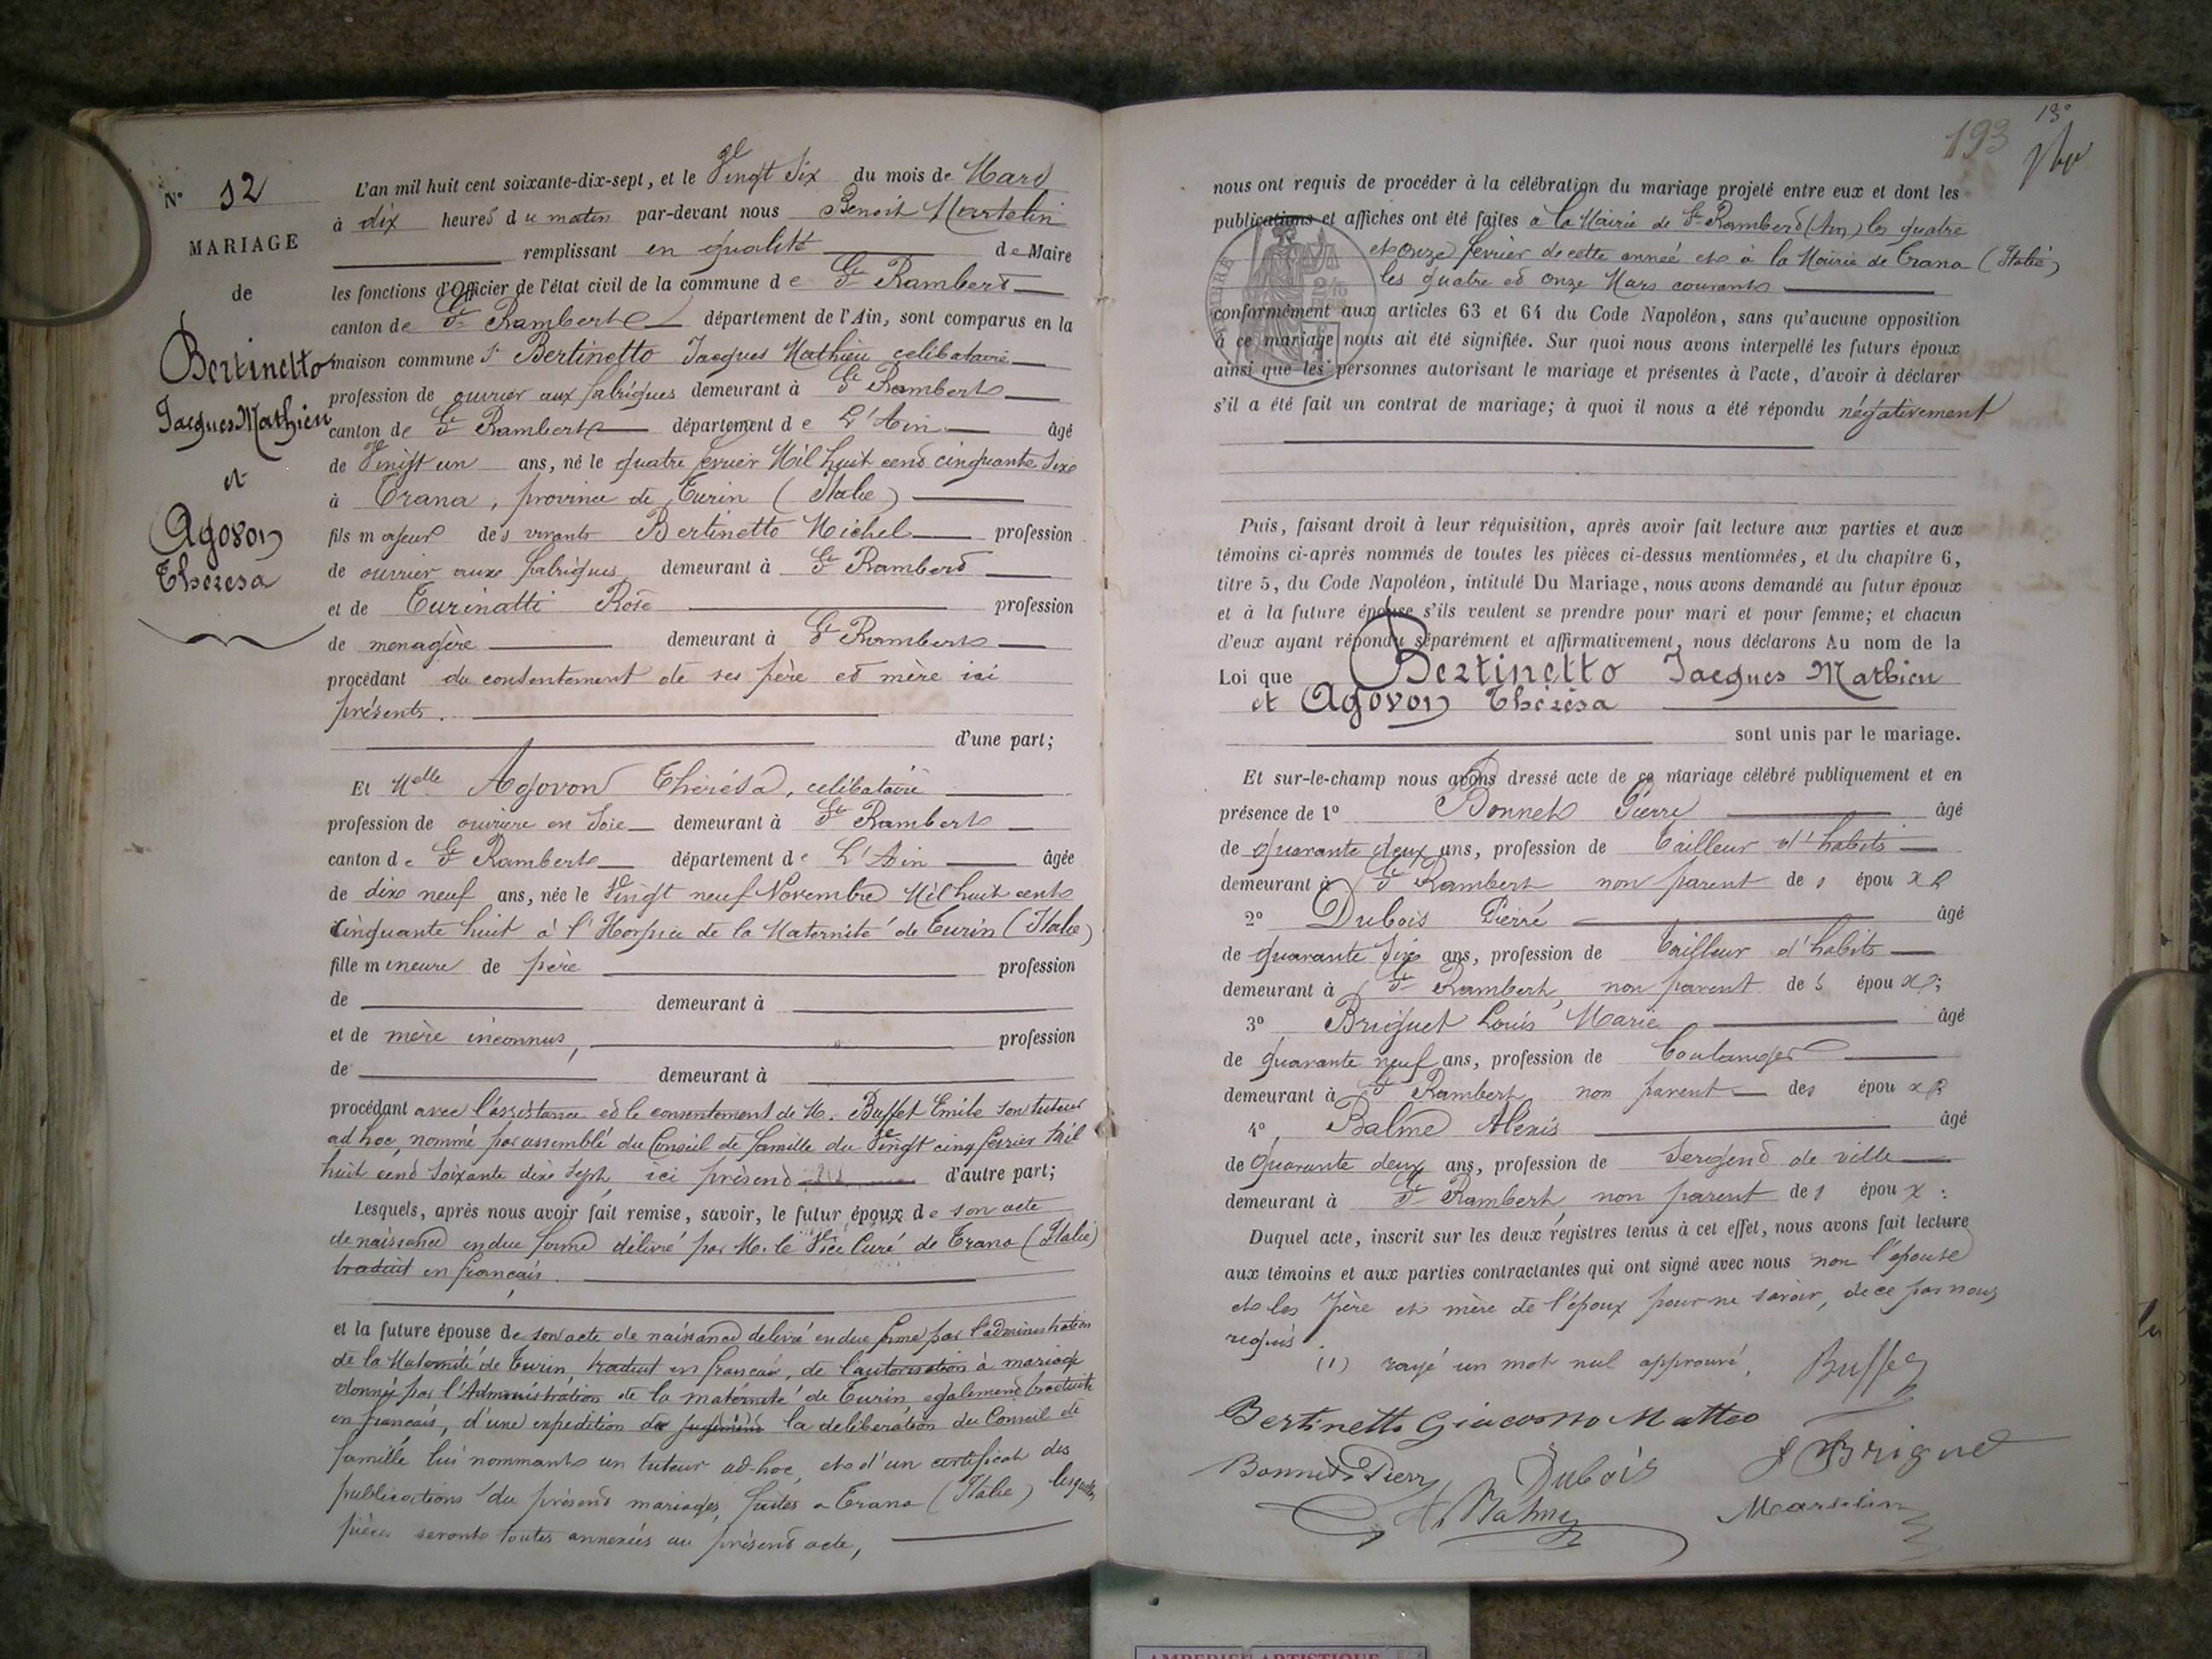 N° 12
MARIAGE
de
Bertinetto
Jacques Mathieu
et
Agovon
Thérésa
L'an mil huit cent soixante-dix-sept, et le Vingt Six du mois de Mars
à dix heures du matin par-devant nous Benoit Martelin
remplissant en qualité de Maire
les fonctions d'Officier de l'état civil de la commune de St Rambert
canton de St Rambert département de l'Ain, sont comparus en la
maison commune Sr Bertinetto Jacques Mathieu celibataire
profession de ouvrier aux fabriques demeurant à St Rambert
canton de St Rambert département de L'Ain âgé
de Vingt un ans, né le quatre fevrier Mil huit cent cinquante Six
à Trana, province de Turin (Italie)
fils majeur des vivants Bertinetto Michel profession
de ouvrier aux fabriques demeurant à St Rambert
et de Turinatti Rose profession
de menagère demeurant à St Rambert
procédant du consentement de ses père et mère ici
présents.
d'une part;
Et Melle Agovon Thérésa, celibataire
profession de ouvriere en Soie demeurant à St Rambert
canton de St Rambert département de L'Ain âgée
de dix neuf ans, née le Vingt neuf Novembre Mil huit cent
Cinquante huit à l'Hospice de la Maternité de Turin (Italie)
fille mineure de père profession
de demeurant à
et de mère inconnus, profession
de demeurant à
procédant avec l'assistance et le consentement de M. Buffet Emile son tuteur
ad hoc, nommé par assemblé du Conseil de famille du Vingt cinq fevrier Mil
huit cent Soixante dix Sept, ici présent d'autre part;
Lesquels, après nous avoir fait remise, savoir, le futur époux de son acte
de naissance en due forme délivré par M. le Vice Curé de Trana (Italie)
traduit en français.
et la future épouse de son acte de naissance delivré en due forme par l'administration
de la Maternité de Turin, traduit en français, de l'autorisation à mariage
donnée par l'Administration de la maternité de Turin egalement traduite
en français, d'une expédition de jugement la deliberation du Conseil de
famille lui nommant un tuteur ad-hoc, et d'un certificat des
publications du présent mariage, faites à Trana (Italie) lesquelles
pièces seront toutes annexées au présent acte,
193
13e
nous ont requis de procéder à la célébration du mariage projeté entre eux et dont les
publications et affiches ont été faites à la Mairie de St Rambert (Ain) les quatre
et onze fevrier de cette année et à la Mairie de Trana (Italie)
les quatre et onze Mars courant
conformément aux articles 63 et 64 du Code Napoléon, sans qu'aucune opposition
à ce mariage nous ait été signifiée. Sur quoi nous avons interpellé les futurs époux
ainsi que les personnes autorisant le mariage et présentes à l'acte, d'avoir à déclarer
s'il a été fait un contrat de mariage; à quoi il nous a été répondu négativement
Puis, faisant droit à leur réquisition, après avoir fait lecture aux parties et aux
témoins ci-après nommés de toutes les pièces ci-dessus mentionnées, et du chapitre 6,
titre 5, du Code Napoléon, intitulé Du Mariage, nous avons demandé au futur époux
et à la future épouse s'ils veulent se prendre pour mari et pour femme; et chacun
d'eux ayant répondu séparément et affirmativement, nous déclarons Au nom de la
Loi que Bertinetto Jacques Mathieu
et Agovon Thérésa
sont unis par le mariage.
Et sur-le-champ nous avons dressé acte de ce mariage célébré publiquement et en
présence de 1° Bonnet Pierre âgé
de quarante deux ans, profession de tailleur d'habits
demeurant à St Rambert non parent des époux
2° Dubois Pierre âgé
de quarante Six ans, profession de tailleur d'habits
demeurant à St Rambert, non parent des époux;
3° Briguet Louis Marie âgé
de quarante neuf ans, profession de boulanger
demeurant à St Rambert non parent des époux
4° Balme Alexis âgé
de quarante deux ans, profession de Sergent de ville
demeurant à St Rambert non parent des époux:
Duquel acte, inscrit sur les deux régistres tenus à cet effet, nous avons fait lecture
aux témoins et aux parties contractantes qui ont signé avec nous non l'épouse
et les père et mère de l'époux pour ne savoir, de ce par nous
requis.
(1) rayé un mot nul approuvé. Buffet
Bertinetto Giacomo Matteo
Bonnet Pierre Dubois L Briguet
A. Balme Martelin
AMBERIEU ARTISTIQUE